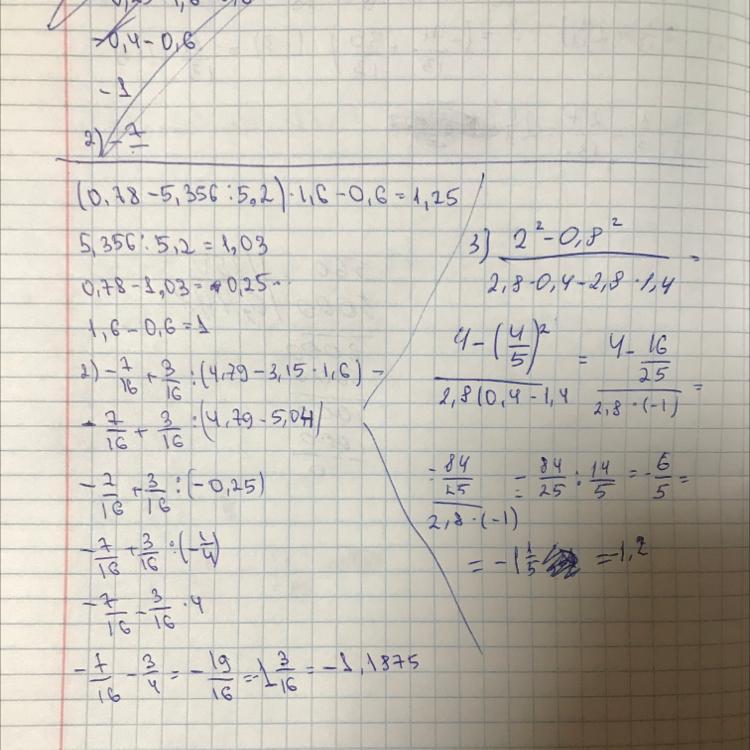 -0,4-0,6
-1
2) -7/
(0,78-5,356:5,2)·1,6-0,6=1,25
5,356:5,2=1,03
0,78-1,03=-0,25
1,6-0,6=1
2) -7/16+3/16:(4,79-3,15·1,6)-
-7/16+3/16:(4,79-5,04)
-7/16+3/16:(-0,25)
-7/16+3/16:(-1/4)
-7/16-3/16·4
-7/16-3/4=-19/16=-1 3/16=-1,1875
3) 2²-0,8²/2,8·0,4-2,8·1,4=
4-(4/5)²/2,8(0,4-1,4=4-16/25/2,8·(-1)=
-84/25/2,8·(-1)=-84/25:14/5=-6/5=
=-1 1/5=-1,2